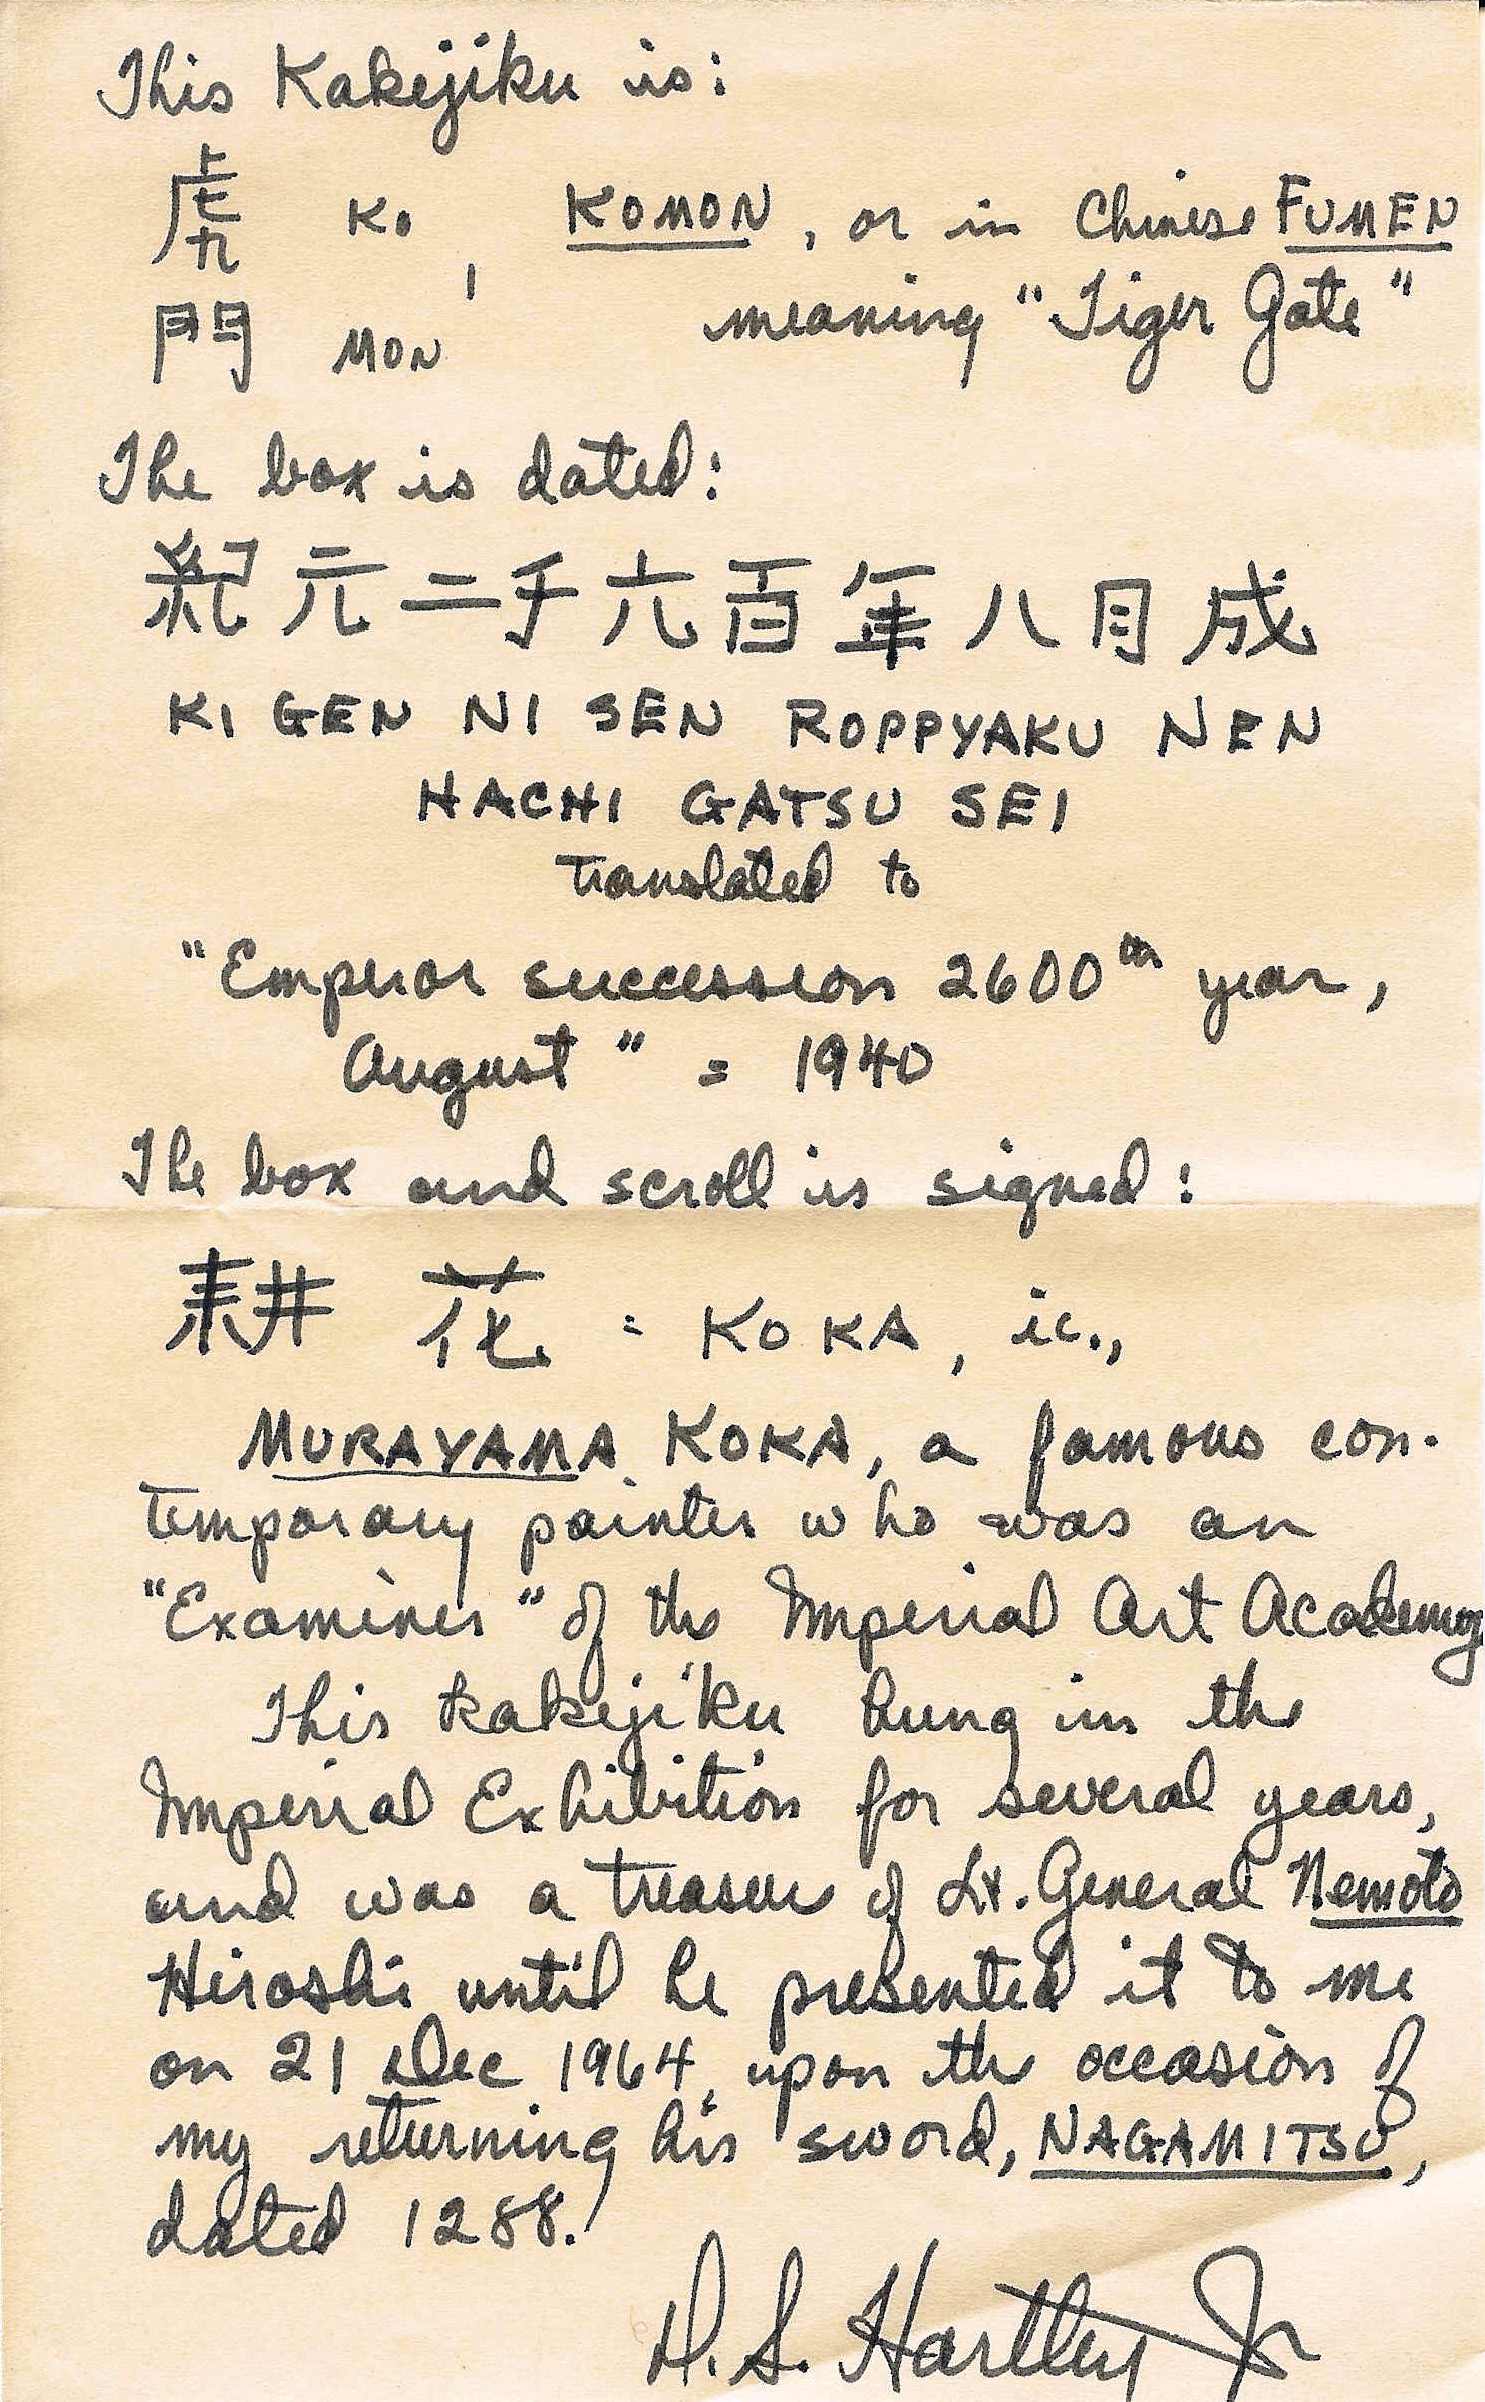 This Kakejiku is:
虎 KO, KOMON, or in Chinese FUMEN
門 MON meaning "Tiger Gate"
The box is dated:
紀元二千六百年八月成
KI GEN NI SEN ROPPYAKU NEN
HACHI GATSU SEI
translated to
"Emperor succession 2600th year,
August" = 1940
The box and scroll is signed:
耕 花 = KOKA, ie.,
MURAYAMA KOKA, a famous con-
temporary painter who was an
"Examiner" of the Imperial Art Academy
This kakejiku hung in the
Imperial Exhibition for several years,
and was a treasure of Lt. General Nemoto
Hiroshi until he presented it to me
on 21 Dec 1964, upon the occasion of
my returning his sword, NAGAMITSU,
dated 1288.
D. S. Hartley Jr